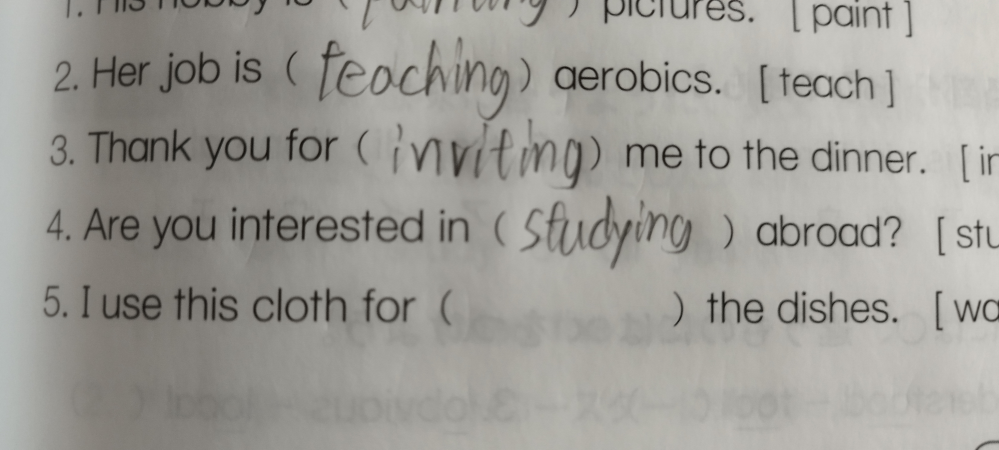 1. His hobby is ( painting ) pictures. [ paint ]
2. Her job is ( teaching ) aerobics. [ teach ]
3. Thank you for ( inviting ) me to the dinner. [ in
4. Are you interested in ( studying ) abroad? [ stu
5. I use this cloth for ( ) the dishes. [ wa